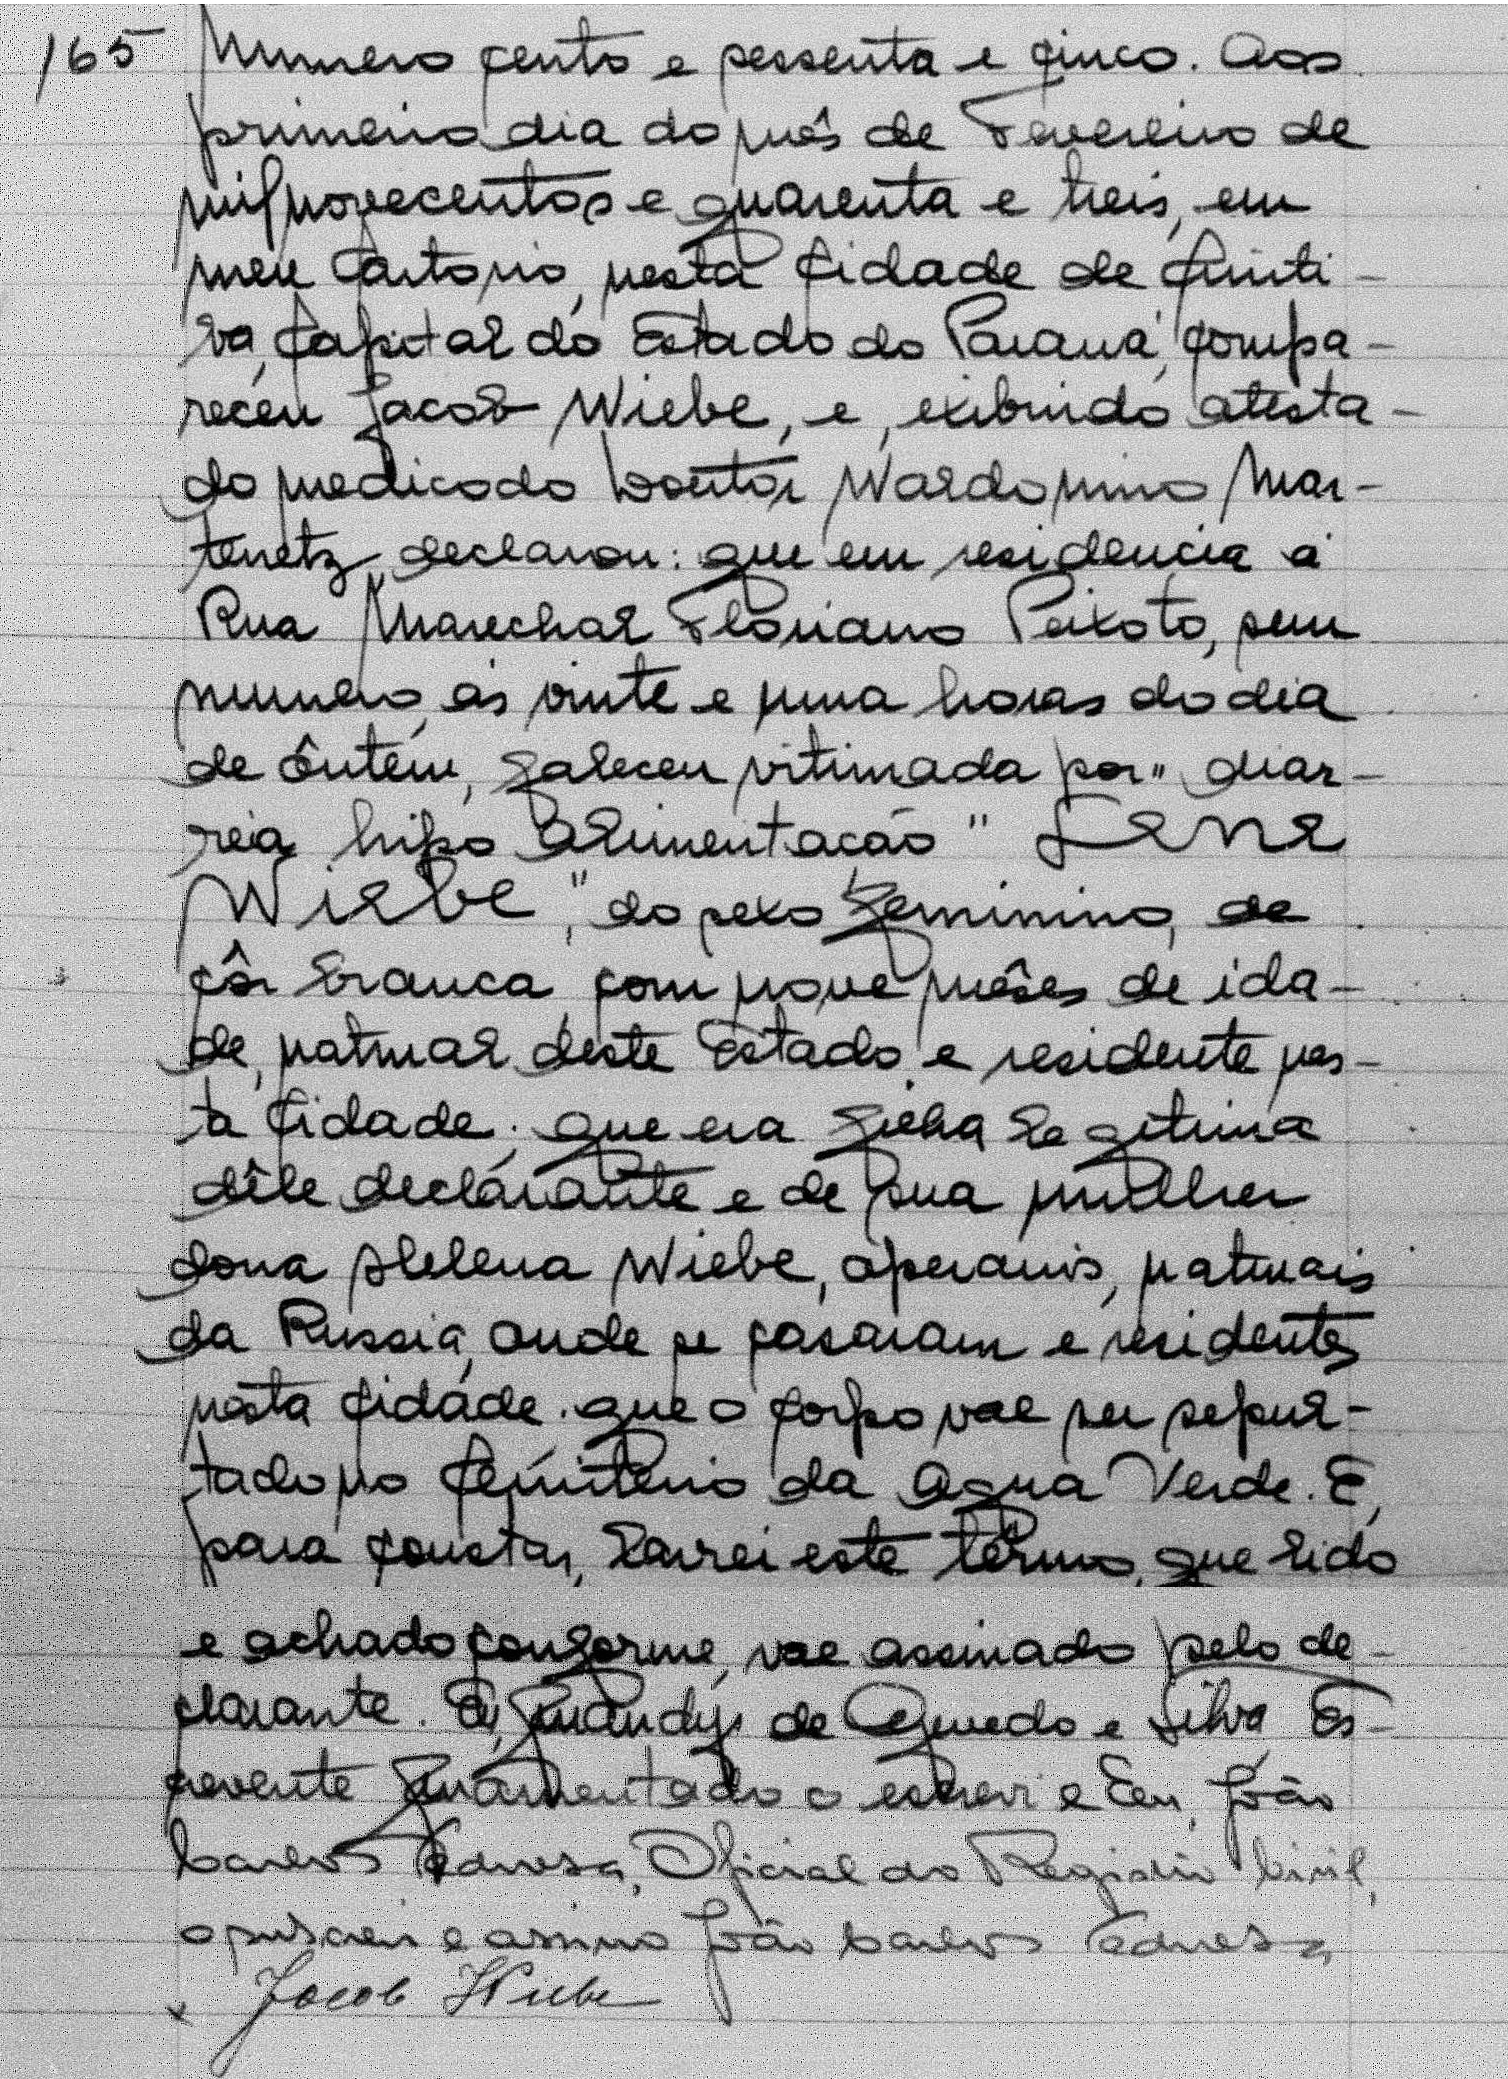 165 Numero cento e sessenta e cinco. Aos
primeiro dia do mês de Fevereiro de
mil novecentos e quarenta e treis, em
meu Cartorio, nesta Cidade de Curiti-
ba, Capital do Estado do Paraná, compa-
receu Jacob Wiebe, e, exibindo atesta-
do medico do Doutor Waldomiro Mar-
tenetz declarou: que em residencia á
Rua Marechal Floriano Peixoto, sem
numero, ás vinte e uma horas do dia
de ôntem, faleceu vitimada por "diar-
reia hipo alimentacão" Lene
Wiebe," do sexo feminino, de
côr branca, com nove mêses de ida-
de, natural deste Estado e residente nes-
ta Cidade; que era filha legitima
dêle declarante e de sua mulher
dona Helena Wiebe, operarios, naturais
da Russia, onde se casaram e residentes
nesta Cidade. que o corpo vae ser sepul-
tado no Cemiterio da Agua Verde. E,
para constar, lavrei este têrmo, que lido
e achado conforme, vae assinado pelo de-
clarante. Eu, Jurandyr de Azevedo e Silva Es-
crevente Juramentado o escrevi e Eu, João
Carlos Oficial do Registro Civil,
o subscrevi e assino João Carlos
x Jacob Wiebe